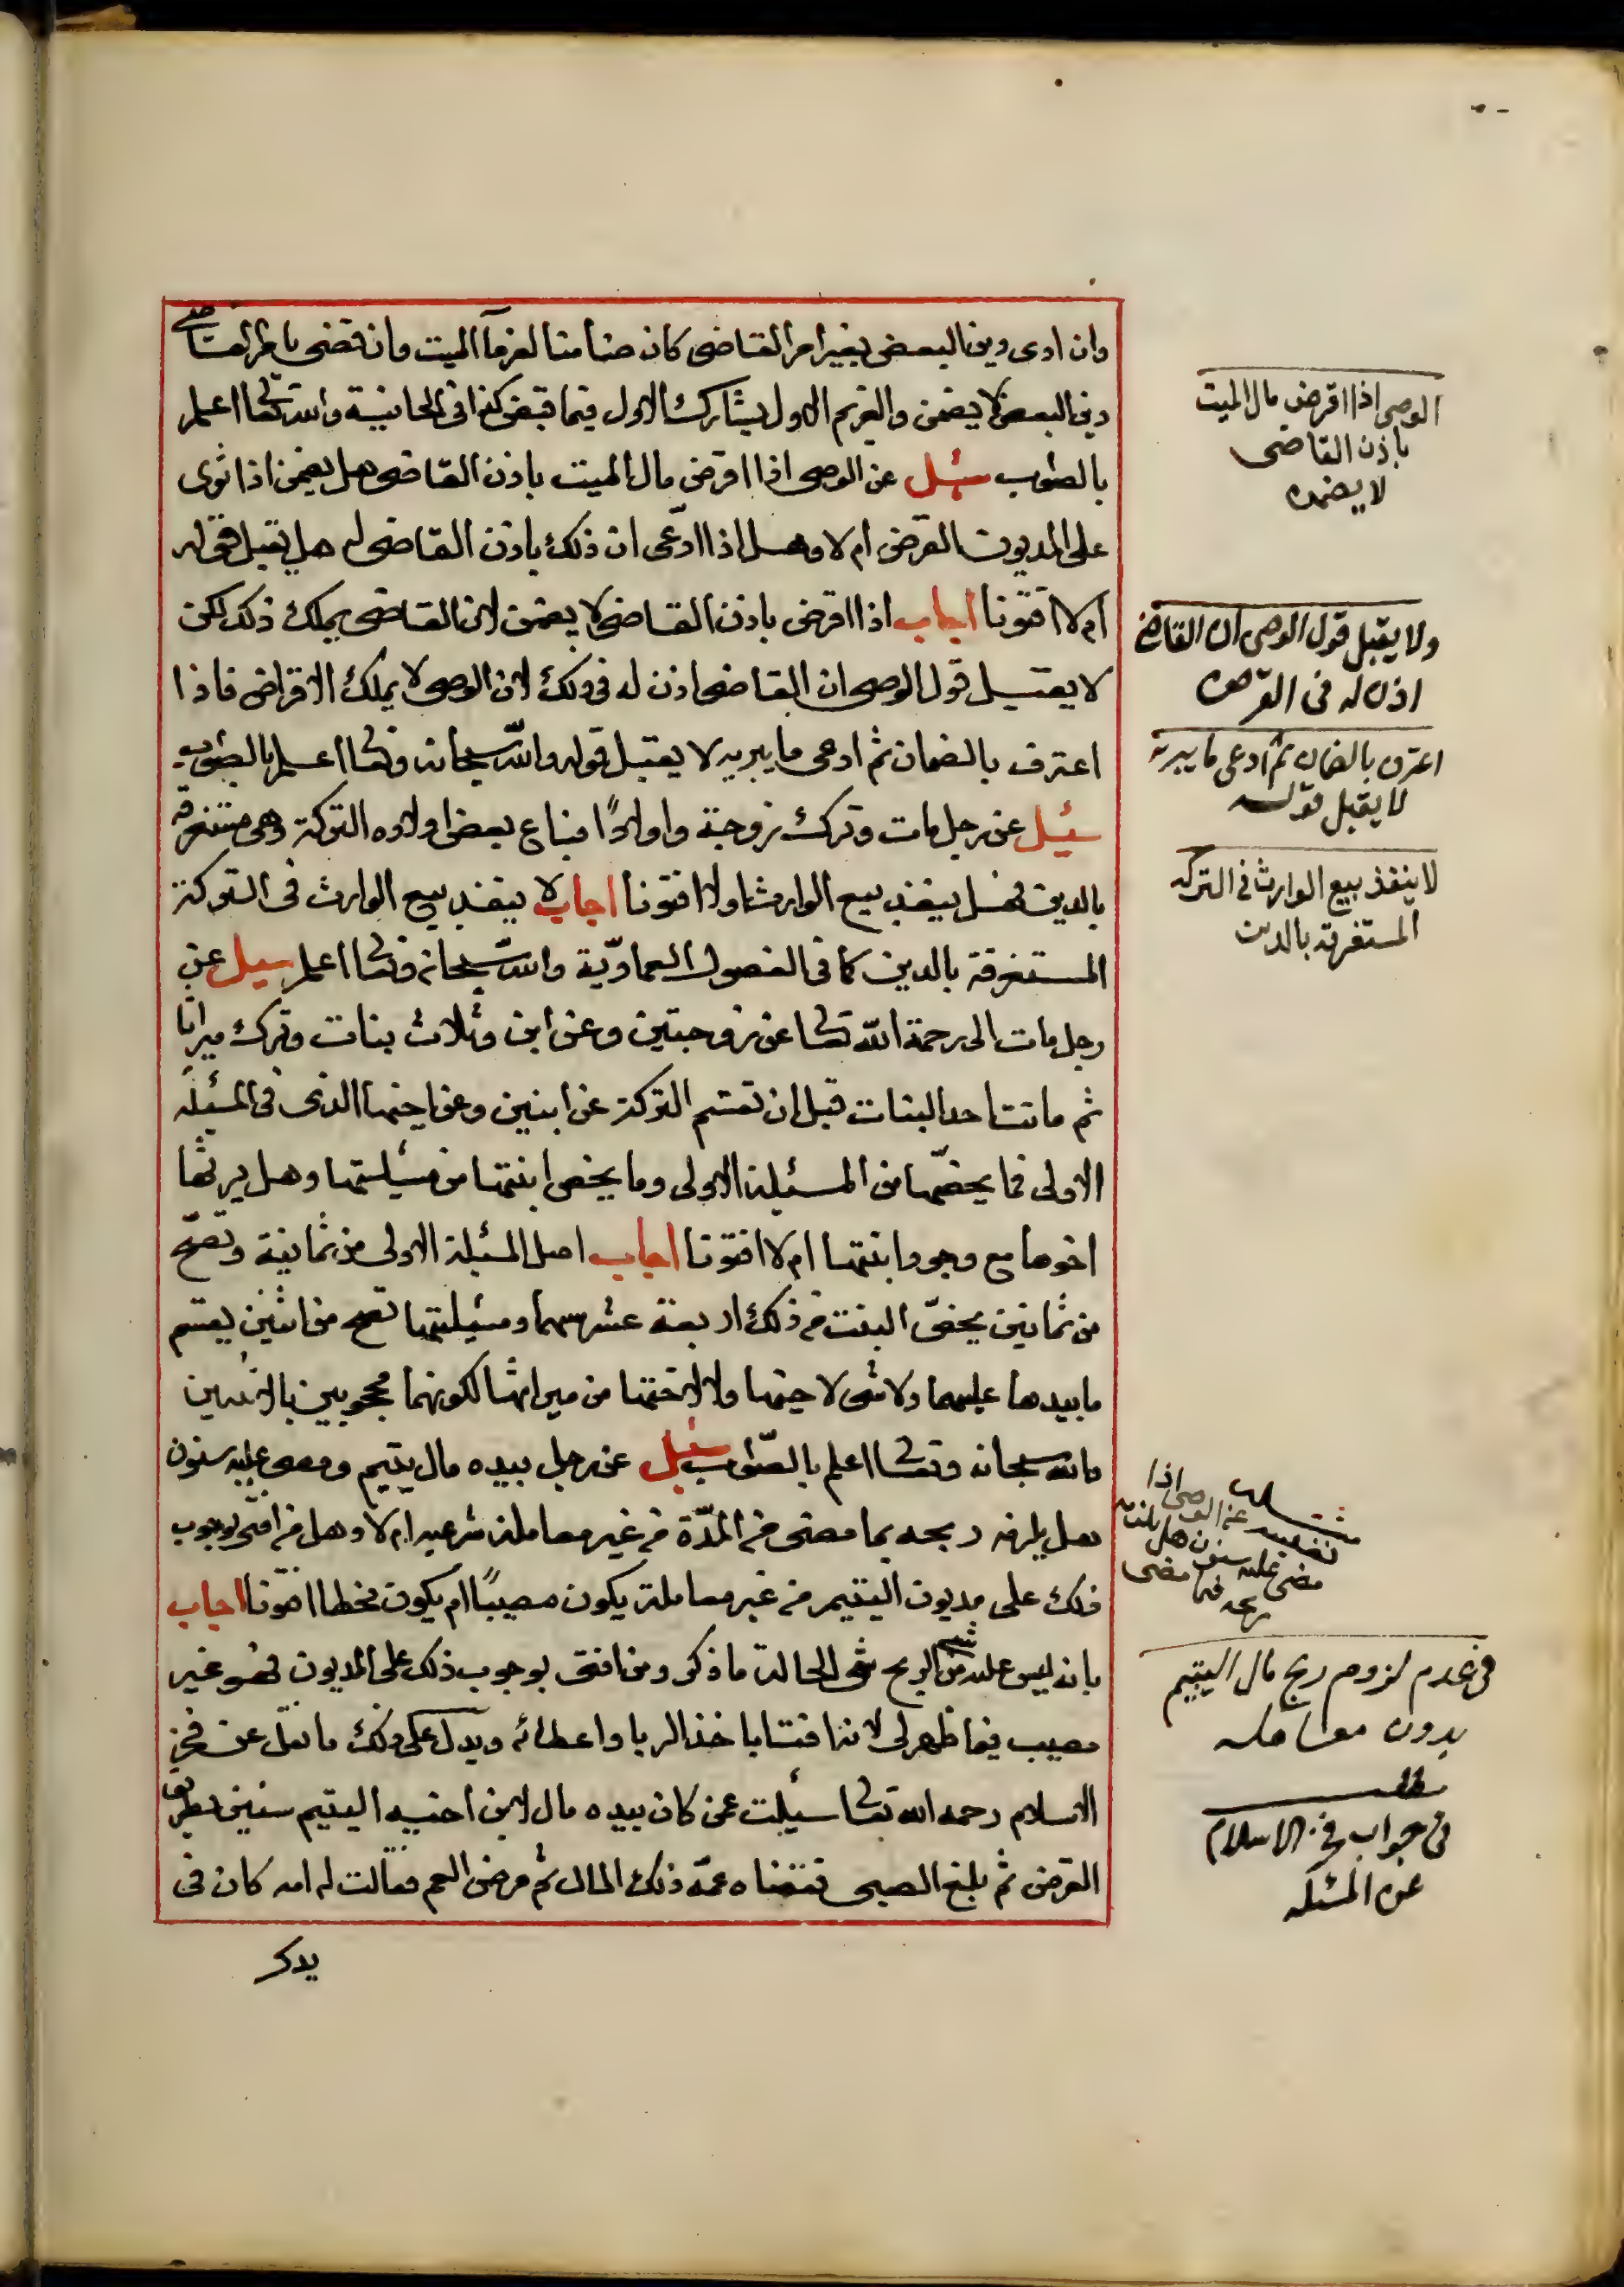 وان ادى دين البعض بغير امر القاضى كان ضامنا لغرمآ الميت وان قضى بامر القاضى
دين البعض لا يضمن والغريم الاول يشارك الاول فيما قبض كذا فى الخانية والله تعالى اعلم
بالصواب سئل عن الوصى اذا اقرض مال الميت باذن القاضى هل يضمن اذا توى
على المديون القرض ام لا وهل اذا ادّعى ان ذلك باذن القاضى له هل يقبل قوله
ام لا افتونا اجاب اذا اقرض باذن القاضى لا يضمن لان القاضى يملك ذلك لكن
لا يقبل قول الوصى ان القاضى اذن له فى ذلك لان الوصى لا يملك الاقراض فاذا
اعترف بالضمان ثم ادعى ما يبريه لا يقبل قوله والله سبحانه وتعالى اعلم بالصواب
سئيل عن رجل مات وترك زوجة واولادًا فباع بعض اولاده التركة وهى مستغرقة
بالدين فهل ينفذ بيع الوارث اولا افتونا اجاب لا ينفذ بيع الوارث فى التركة
المستغرقة بالدين كما فى الفصول العمادّية والله سبحانه وتعالى اعلم سيل عن
رجل مات الى رحمة الله تعالى عن زوجتين وعن ابن وثلاث بنات وترك ميراثا
ثم ماتت احد البنات قبل ان تقسم التركة عن ابنين وعن اخيها الذى فى المسئلة
الاولى فما يخصّها من المسئلة الاولى وما يخص ابنتها من مسئلتها وهل يرثها
اخوها مع وجود ابنتها ام لا افتونا اجاب اصل المسئلة الاولى من ثمانية وتصح
من ثمانين يخصّ البنت من ذلك اربعة عشر سهما ومسئلتها تصح من اثنين يقسم
ما بيدها عليهما ولا شى لاخيها ولا لاختها من ميراثها لكونهما محجوبين بالابنين
والله سبحانه وتعالى اعلم بالصّواب سئيل عن رجل بيده مال يتيم ومضى عليه سنون
هل يلزمه ربحه بما مضى من المدّة من غير معاملة شرعيه ام لا وهل من افتى بوجوب
ذلك على مديون اليتيم من غير معاملة يكون مصيبًا ام يكون مخطا افتونا اجاب
بانه ليس عليه من الربح شى الحالة ما ذكر ومن افتى بوجوب ذلك على المديون فهو غير
مصيب فيما ظهر لى لانه افتا باخذ الربا واعطائه ويدل على ذلك ما نقل عن فخر
الاسلام رحمه الله تعالى سئيلت عمن كان بيده مال لابن اخيه اليتيم سنين بطريق
القرض ثم بلغ الصبى فتقضاه عمّه ذلك المال ثم مرض العم فقالت له امه كان فى
يدك
الوصى اذا اقرض مال الميت
باذن القاضى
لا يضمن
ولا يقبل قول الوصى ان القاضى
اذن له فى القرض
اعترف بالضمان ثم ادعى ما يبريه
لا يقبل قوله
لا ينفذ بيع الوارث فى التركه
المستغرقه بالدين
عن الوصى اذا
مضى عليه سنون هل يلزمه
ربحه فيما مضى
فى عدم لزوم ربح مال اليتيم
بدون معامله
مطلب
فى جواب فخر الاسلام
عن المسئله